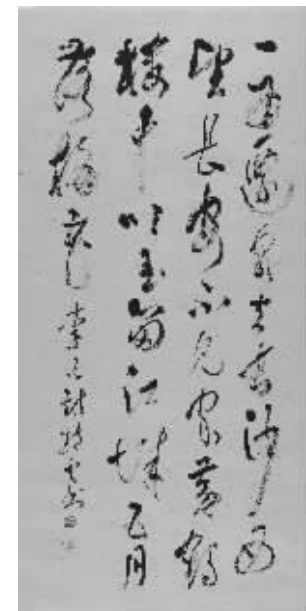 一為遷客去長沙西
望長安不見家黃鶴
樓中吹玉笛江城五月
落梅花 李白詩 書